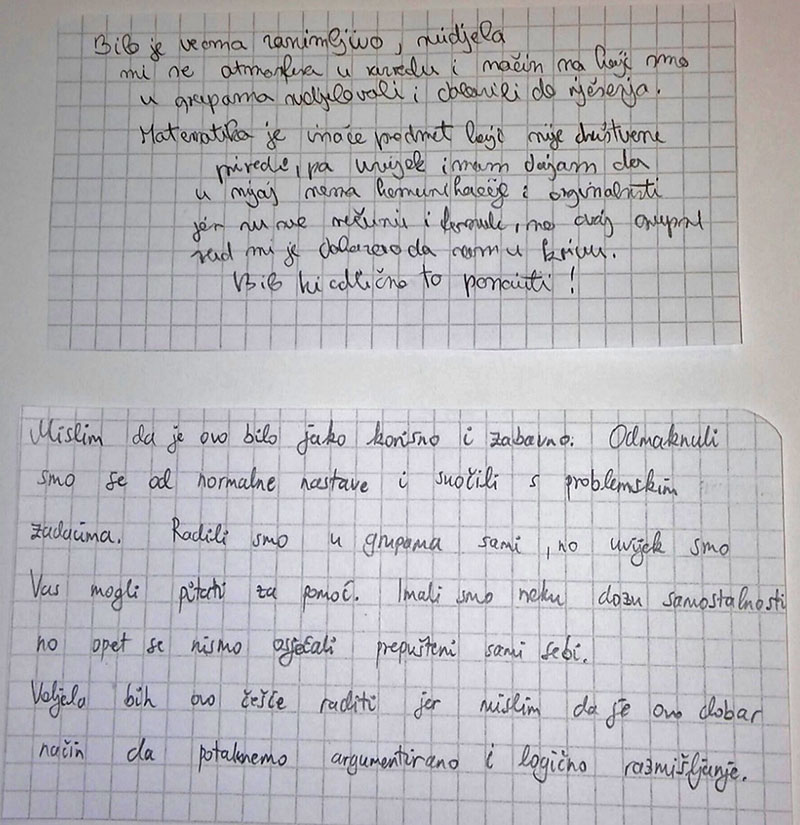 Bilo je veoma zanimljivo, svidjela
mi se atmosfera u razredu i način na koji smo
u grupama sudjelovali i dolazili do rješenja.
Matematika je inače predmet koji nije društvene
prirode, pa uvijek imam osjećaj da
u njoj nema komunikacije i orginalnosti
jer su sve računi i formule, no ovaj grupni
rad mi je dokazao da sam u krivu.
Bilo bi odlično to ponoviti!
Mislim da je ovo bilo jako korisno i zabavno. Odmaknuli
smo se od normalne nastave i suočili s problemskim
zadacima. Radili smo u grupama sami, no uvijek smo
Vas mogli pitati za pomoć. Imali smo neku dozu samostalnosti
no opet se nismo osjećali prepušteni sami sebi.
Voljela bih ovo češće raditi jer mislim da je ovo dobar
način da potaknemo argumentirano i logično razmišljanje.